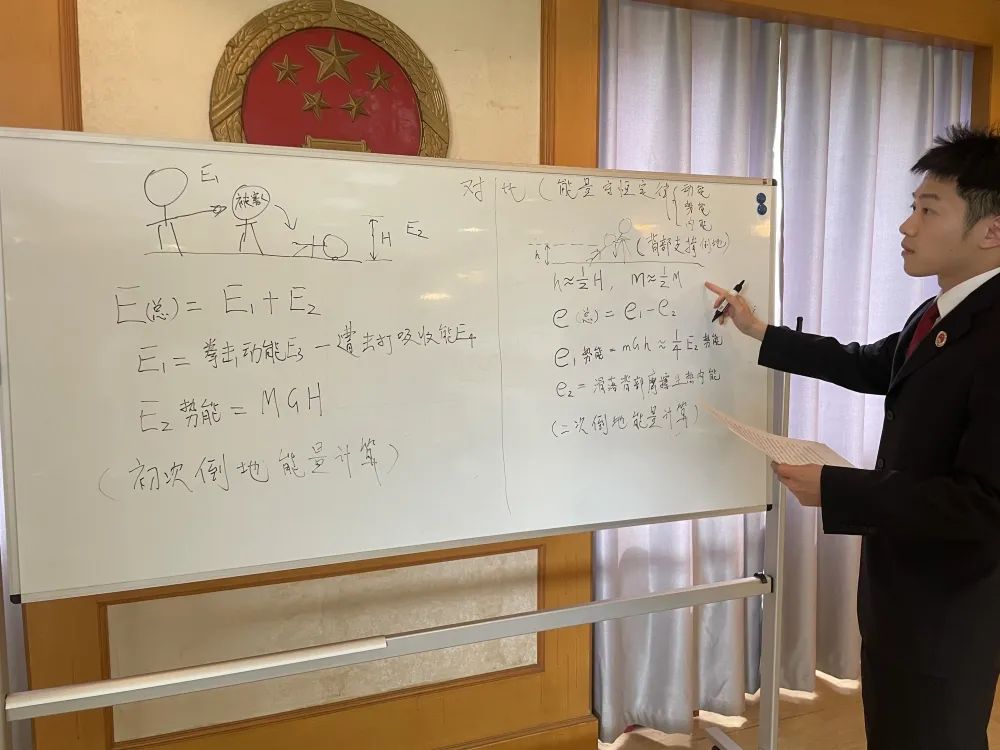 E₁
被害人
H
E₂
E(总) = E₁ + E₂
E₁ = 拳击动能E₃ - 遭击打吸收能E₄
E₂ 势能 = MGH
(初次倒地能量计算)
对比(能量守恒定律
动能
势能
内能
h
(背部支撑倒地)
h≈½H, m≈½M
e(总) = e₁-e₂
e₁势能 = mGh ≈ ¼E₂势能
e₂ = 滑落背部摩擦生热内能
(二次倒地能量计算)